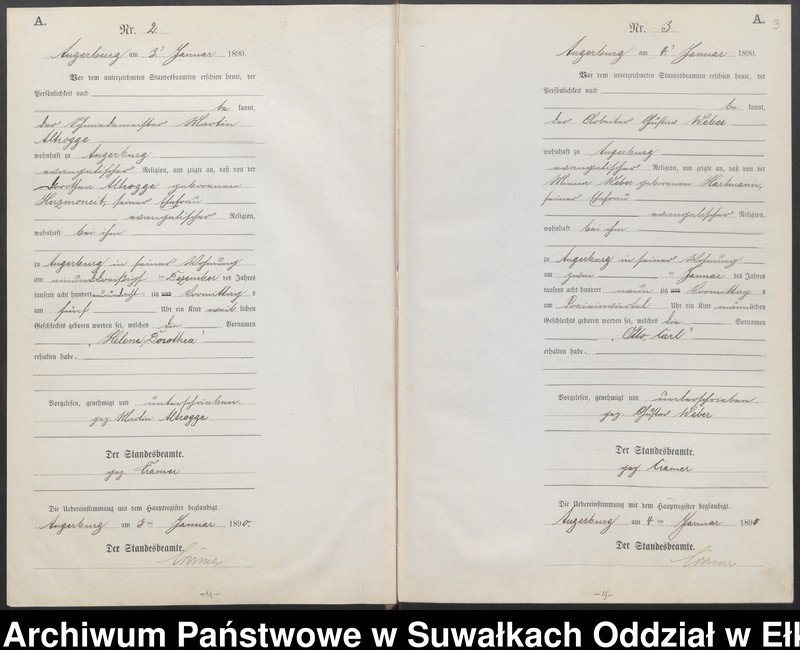 A.
Nr. 2
Angerburg am 3ᵗ Januar 1890.
Vor dem unterzeichneten Standesbeamten erschien heute, der
Persönlichkeit nach
be kannt,
der Schmiedemeister Martin
Altrogge
wohnhaft zu Angerburg
evangelischer Religion, und zeigte an, daß von der
Dorothea Altrogge geborenen
seiner Ehefrau
evangelischer Religion,
wohnhaft bei ihm
zu Angerburg in seiner Wohnung
am einunddreißigst en Dezember des Jahres
tausend acht hundert zig und Vormittag s
um fünf Uhr ein Kind weib lichen
Geschlechts geboren worden sei, welches die Vornamen
„Helene, Dorothea"
erhalten habe.
Vorgelesen, genehmigt und unterschrieben.
gez. Martin Altrogge
Der Standesbeamte.
gez. Cramer
Die Uebereinstimmung mit dem Hauptregister beglaubigt.
Angerburg am 3 ten Januar 1890.
Der Standesbeamte.
Cramer
-4-
A.
3
Nr. 3.
Angerburg am 4ᵗ Januar 1890.
Vor dem unterzeichneten Standesbeamten erschien heute, der
Persönlichkeit nach
be kannt,
der Arbeiter Gustav Weber
wohnhaft zu Angerburg
evangelischer Religion, und zeigte an, daß von der
Minna Weber geborenen Hartmann,
seiner Ehefrau
evangelischer Religion,
wohnhaft bei ihm
zu Angerburg in seiner Wohnung
am zwei en Januar des Jahres
tausend acht hundert neun zig und Vormittag s
um Uhr ein Kind männlichen
Geschlechts geboren worden sei, welches die Vornamen
„Otto, Carl"
erhalten habe.
Vorgelesen, genehmigt und unterschrieben.
gez. Gustav Weber
Der Standesbeamte.
gez. Cramer
Die Uebereinstimmung mit dem Hauptregister beglaubigt.
Angerburg am 4 ten Januar 1890
Der Standesbeamte.
Cramer
-5-
Archiwum Państwowe w Suwałkach Oddział w Ełk